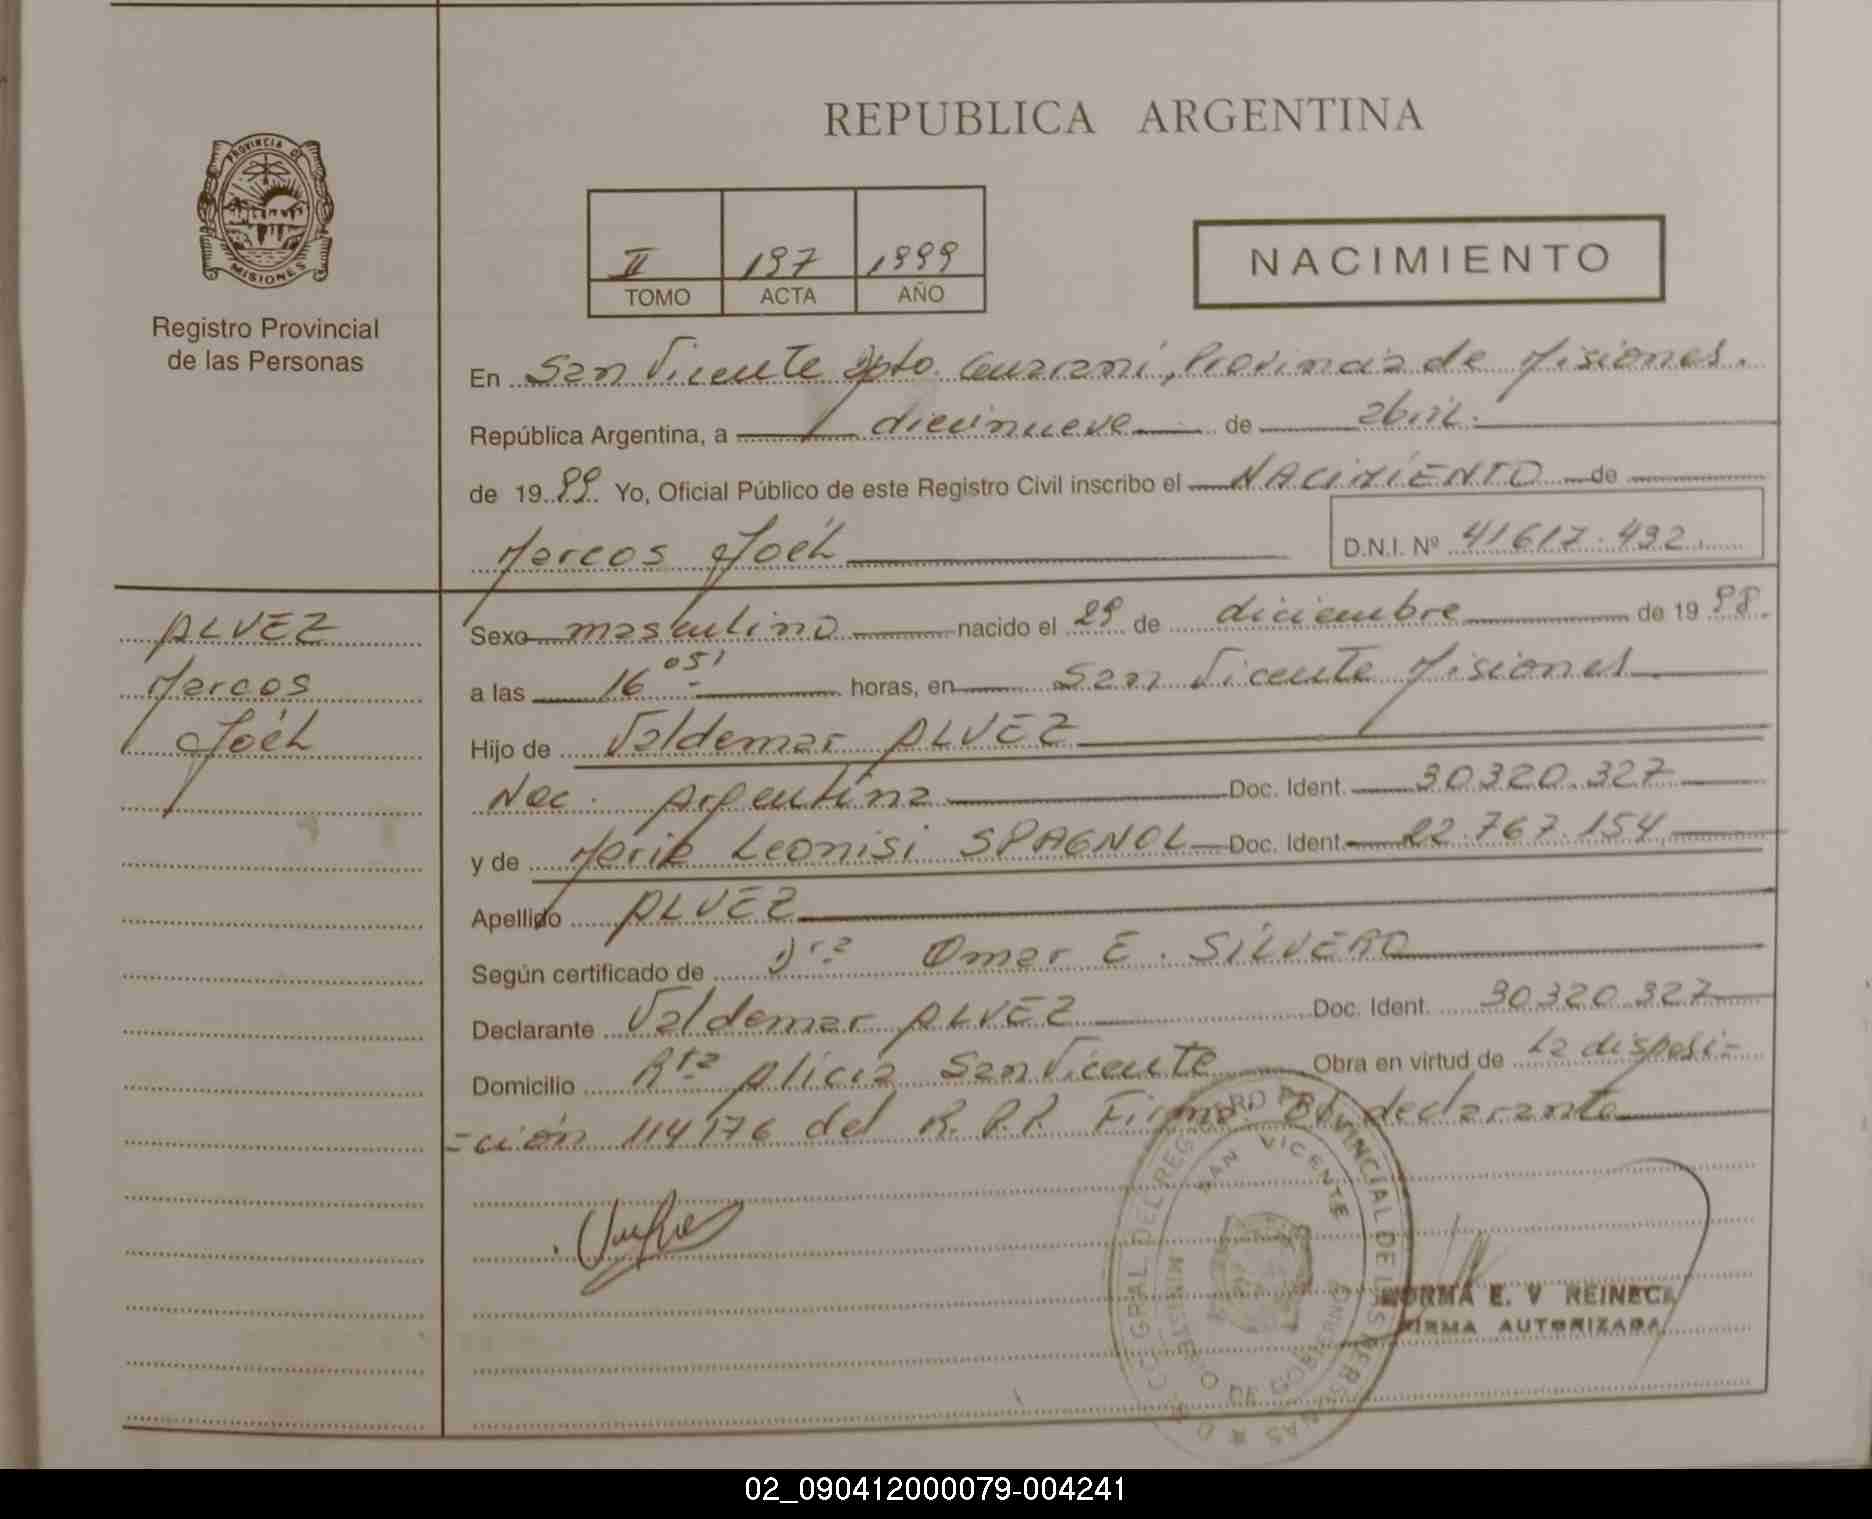 REPUBLICA ARGENTINA
PROVINCIA DE
MISIONES
Registro Provincial
de las Personas
II 197 1999
TOMO ACTA AÑO
NACIMIENTO
En San Vicente Dpto. Guaraní, Provincia de Misiones.
República Argentina, a diecinueve de abril.
de 1999. Yo, Oficial Público de este Registro Civil inscribo el NACIMIENTO de
Marcos Joél D.N.I. Nº 41617.432.
ALVEZ
Marcos
Joél
Sexo masculino nacido el 29 de diciembre de 1998.
a las 16 05' horas, en San Vicente Misiones
Hijo de Valdemar ALVEZ
Nac. Argentina Doc. Ident. 30320.327
y de Maria Leonisi SPAGNOL Doc. Ident. 22.767.154
Apellido ALVEZ
Según certificado de Omar E. SILVERO
Declarante Valdemar ALVEZ Doc. Ident. 30320327
Domicilio Rta Alicia San Vicente Obra en virtud de La disposi-
-ción 114176 del R.P.P. Firma: El declarante
DCC. GRAL. DEL REG PROVINCIAL DE LAS PERSONAS
SAN VICENTE
MINISTERIO DE GOBIERNO
NORMA E. V REINECK
FIRMA AUTORIZADA
02_090412000079-004241